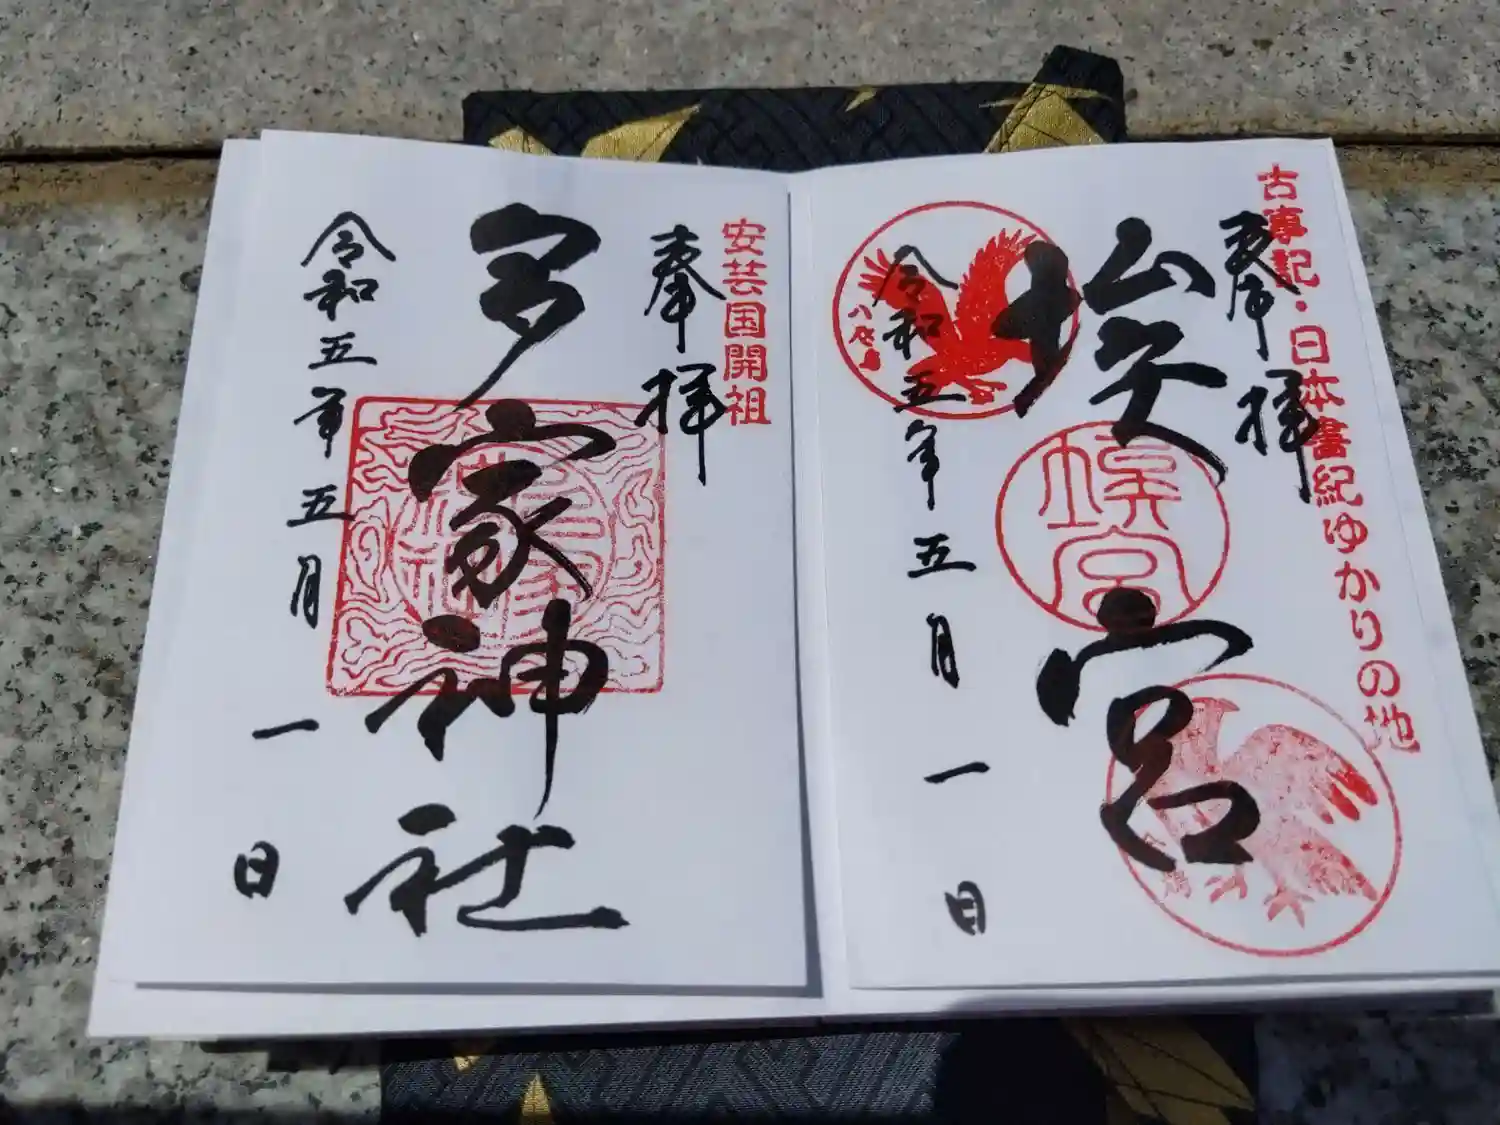 古事記・日本書紀ゆかりの地
奉拝
埃宮
埃宮
八咫烏
令和五年五月一日
安芸国開祖
奉拝
多家神社
令和五年五月一日